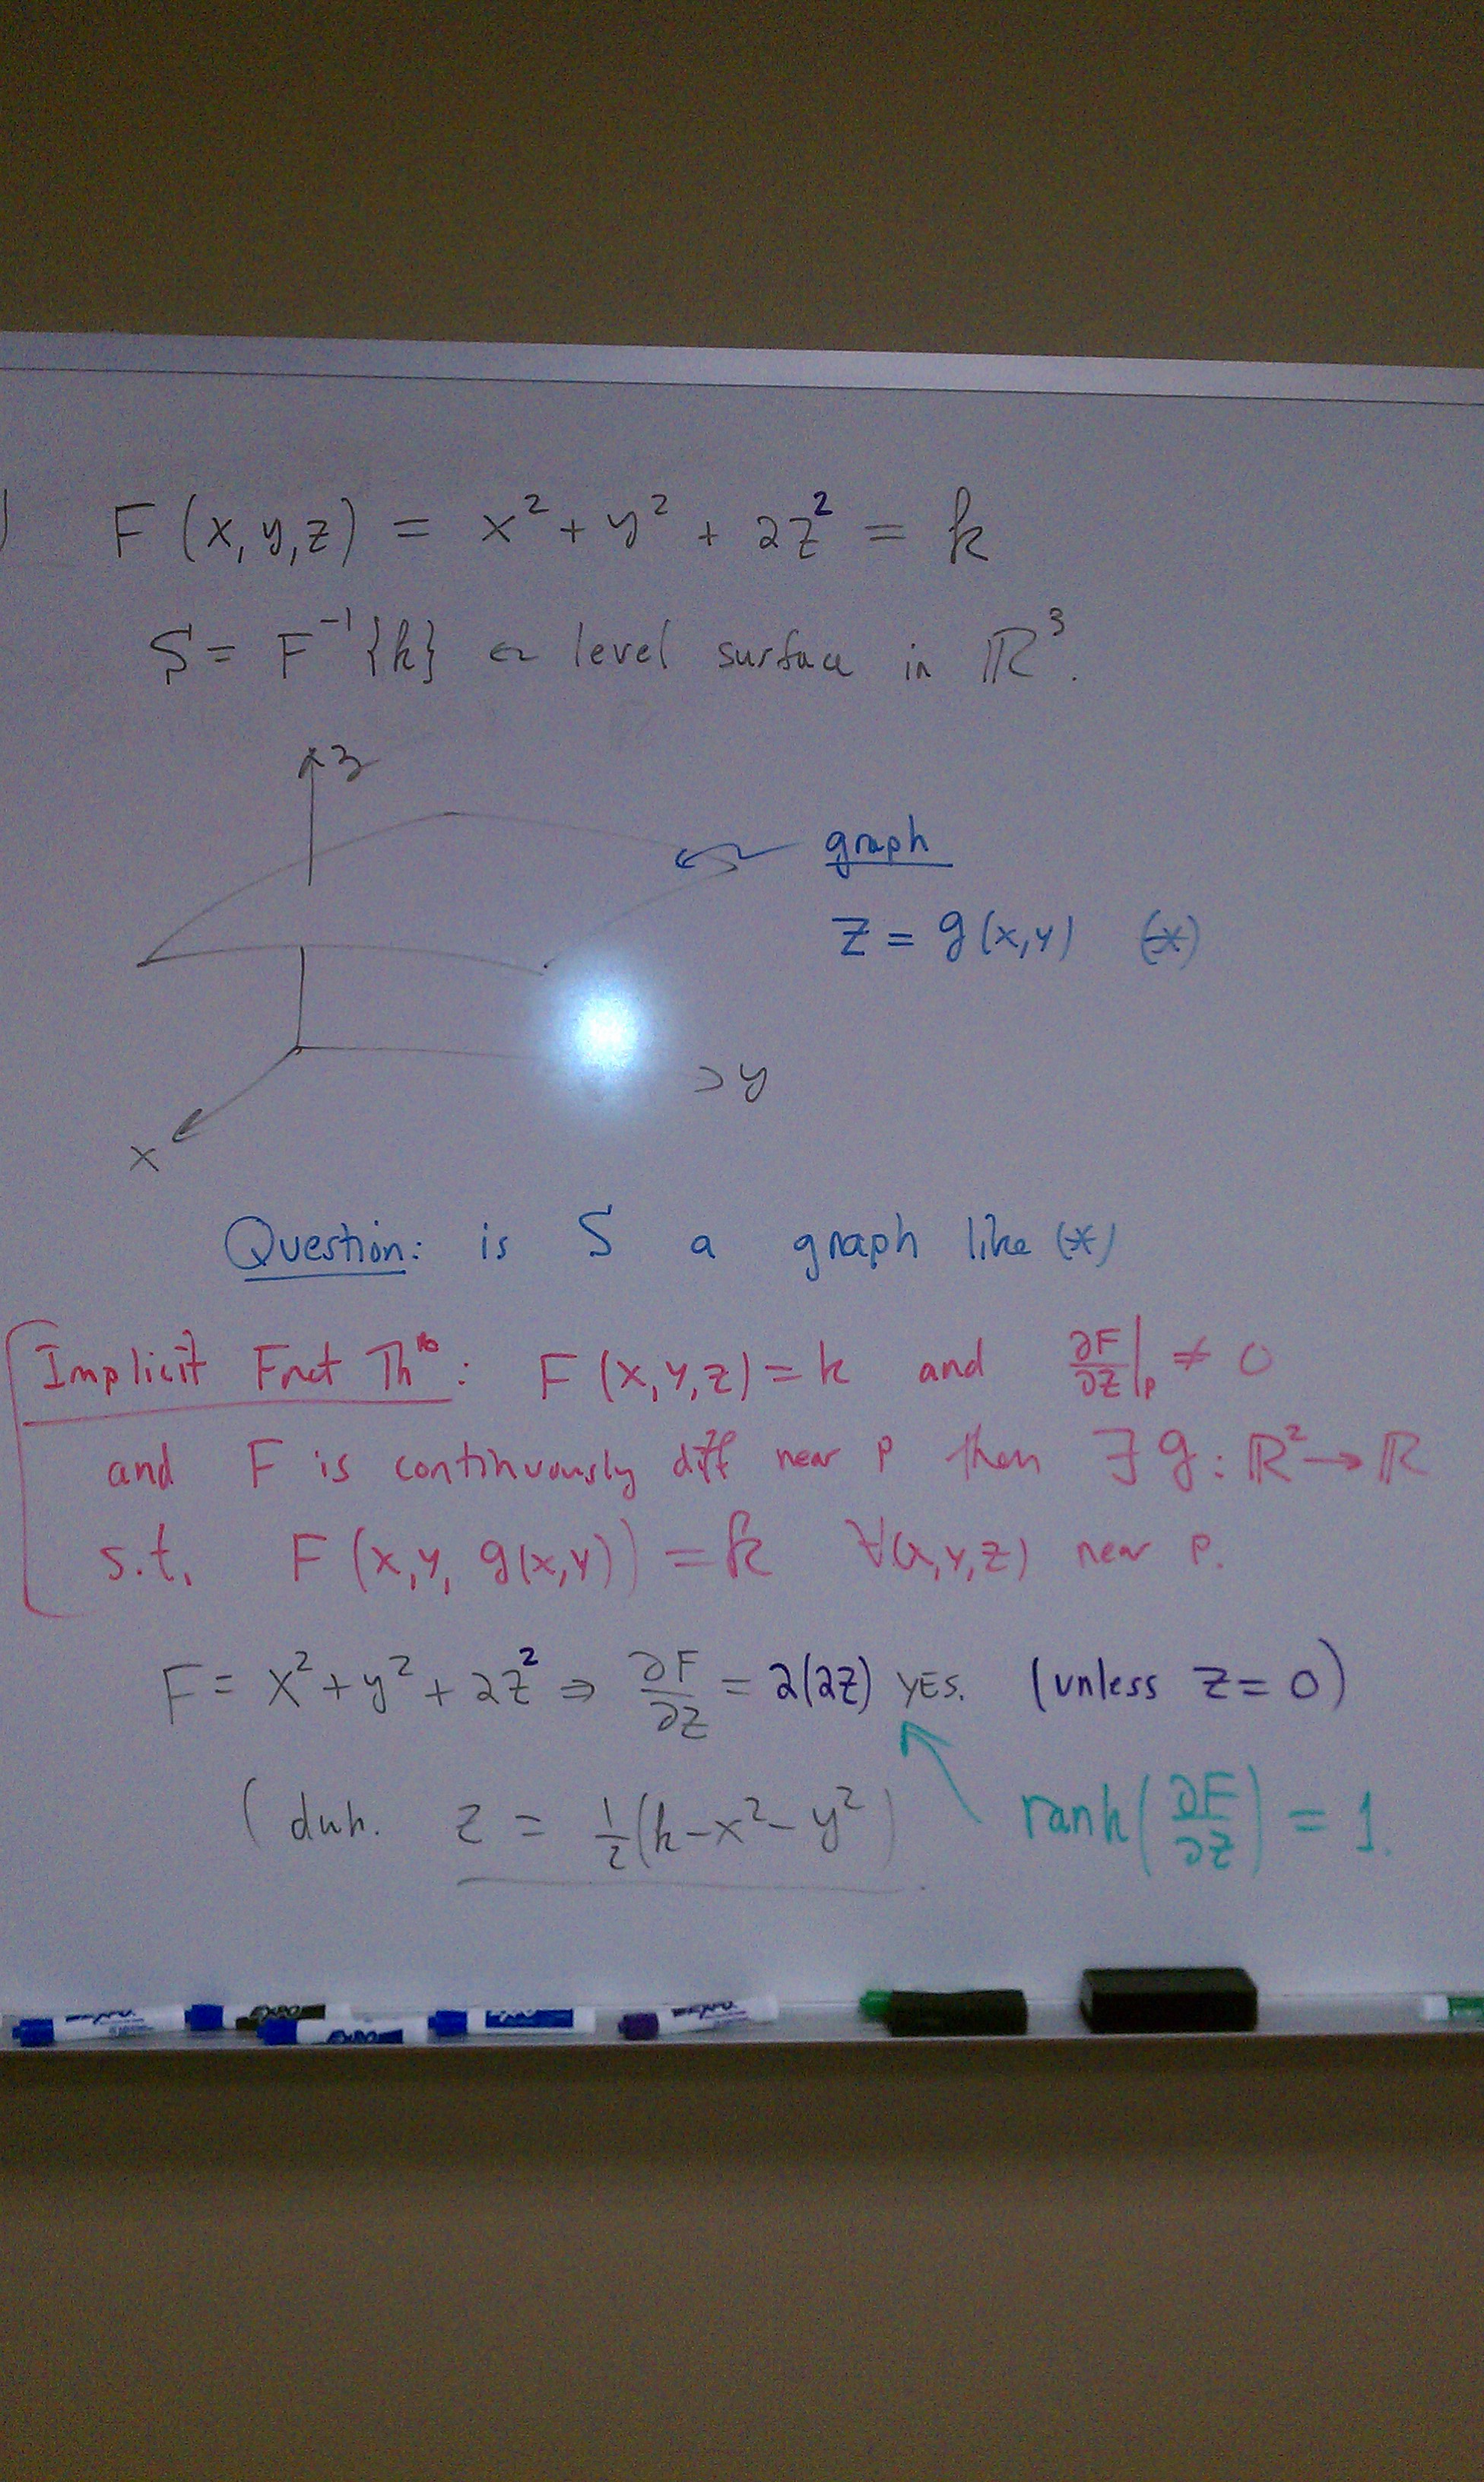 ) F(x,y,z) = x² + y² + 2z² = k
S = F⁻¹{k} ← level surface in ℝ³.
z
graph
z = g(x,y) (*)
y
x
Question: is S a graph like (*)
Implicit Fnct Thᵐ: F(x,y,z) = k and ∂F/∂z|ₚ ≠ 0
and F is continuously diff near p then ∃ g : ℝ² → ℝ
s.t. F(x,y, g(x,y)) = k ∀(x,y,z) near p.
F = x² + y² + 2z² ⇒ ∂F/∂z = 2(2z) YES. (unless z = 0)
(duh. z = ½(k - x² - y²) rank(∂F/∂z) = 1.
EXPO
EXPO
EXPO
EXPO
EXPO